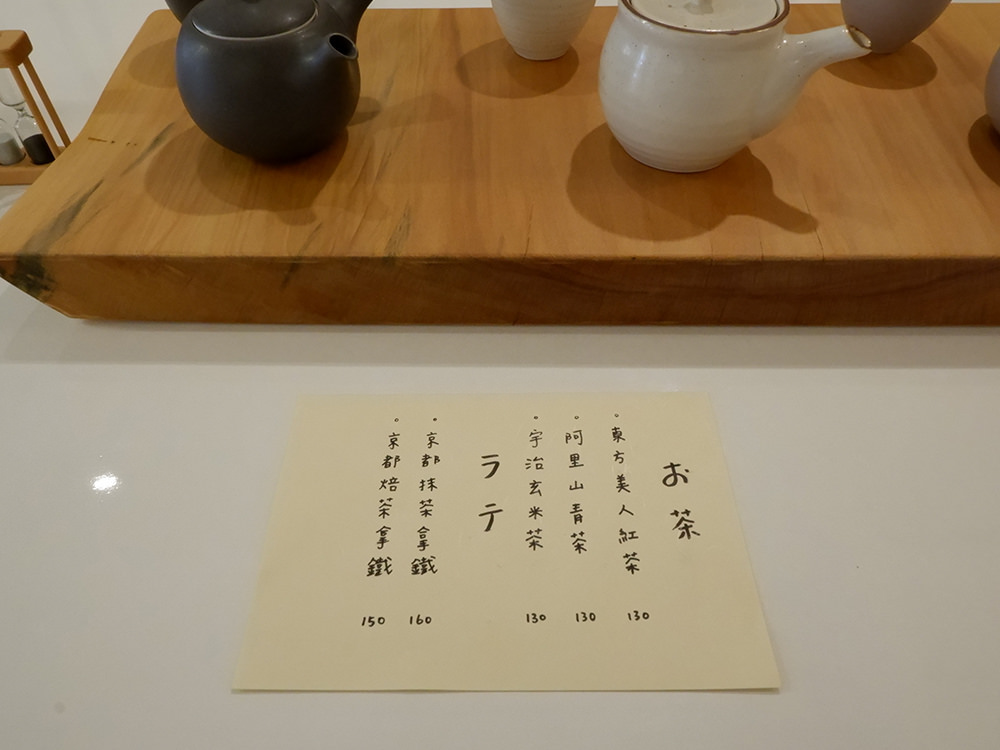 お茶
。東方美人紅茶 130
。阿里山青茶 130
。宇治玄米茶 130
ラテ
。京都抹茶拿鐵 160
。京都焙茶拿鐵 150